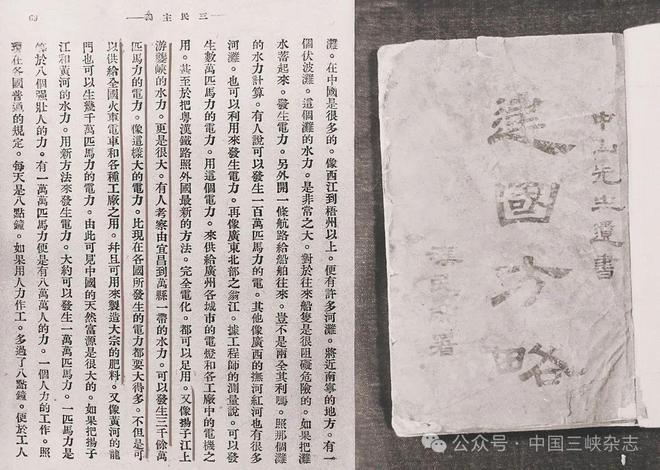 三民主義
灘。在中國是很多的。像西江到梧州以上。便有許多河灘。將近南寧的地方。有一
個伏波灘。這個灘的水力。是非常之大。對於往來船隻是很阻礙危險的。如果把灘
水蓄起來。發生電力。另外開一條航路給船舶往來。豈不是兩全其利嗎。照那個灘
的水力計算。有人說可以發生一百萬匹馬力的電。其他像廣西的撫河紅河也有很多
河灘。也可以利用來發生電力。再像廣東北部之翁江。據工程師的測量說。可以發
生數萬匹馬力的電力。用這個電力。來供給廣州各城市的電燈和各工廠中的電機之
用。甚至於把粵漢鐵路照外國最新的方法。完全電化。都可以足用。又像揚子江上
游夔峽的水力。更是很大。有人考察由宜昌到萬縣一帶的水力。可以發生三千餘萬
匹馬力的電力。像這樣大的電力。比現在各國所發生的電力都要大得多。不但是可
以供給全國火車電車和各種工廠之用。幷且可用來製造大宗的肥料。又像黃河的龍
門也可以生幾千萬匹馬力的電力。由此可見中國的天然富源是很大的。如果把揚子
江和黃河的水力。用新方法來發生電力。大約可以發生一萬萬匹馬力。一匹馬力是
等於八個强壯人的力。有一萬萬匹馬力便是有八萬萬人的力。一個人力的工作。照
現在各國普通的規定。每天是八點鐘。如果用人力作工。多過了八點鐘。便於工人
中山先生遺書
建國方略
署
公众号·中国三峡杂志